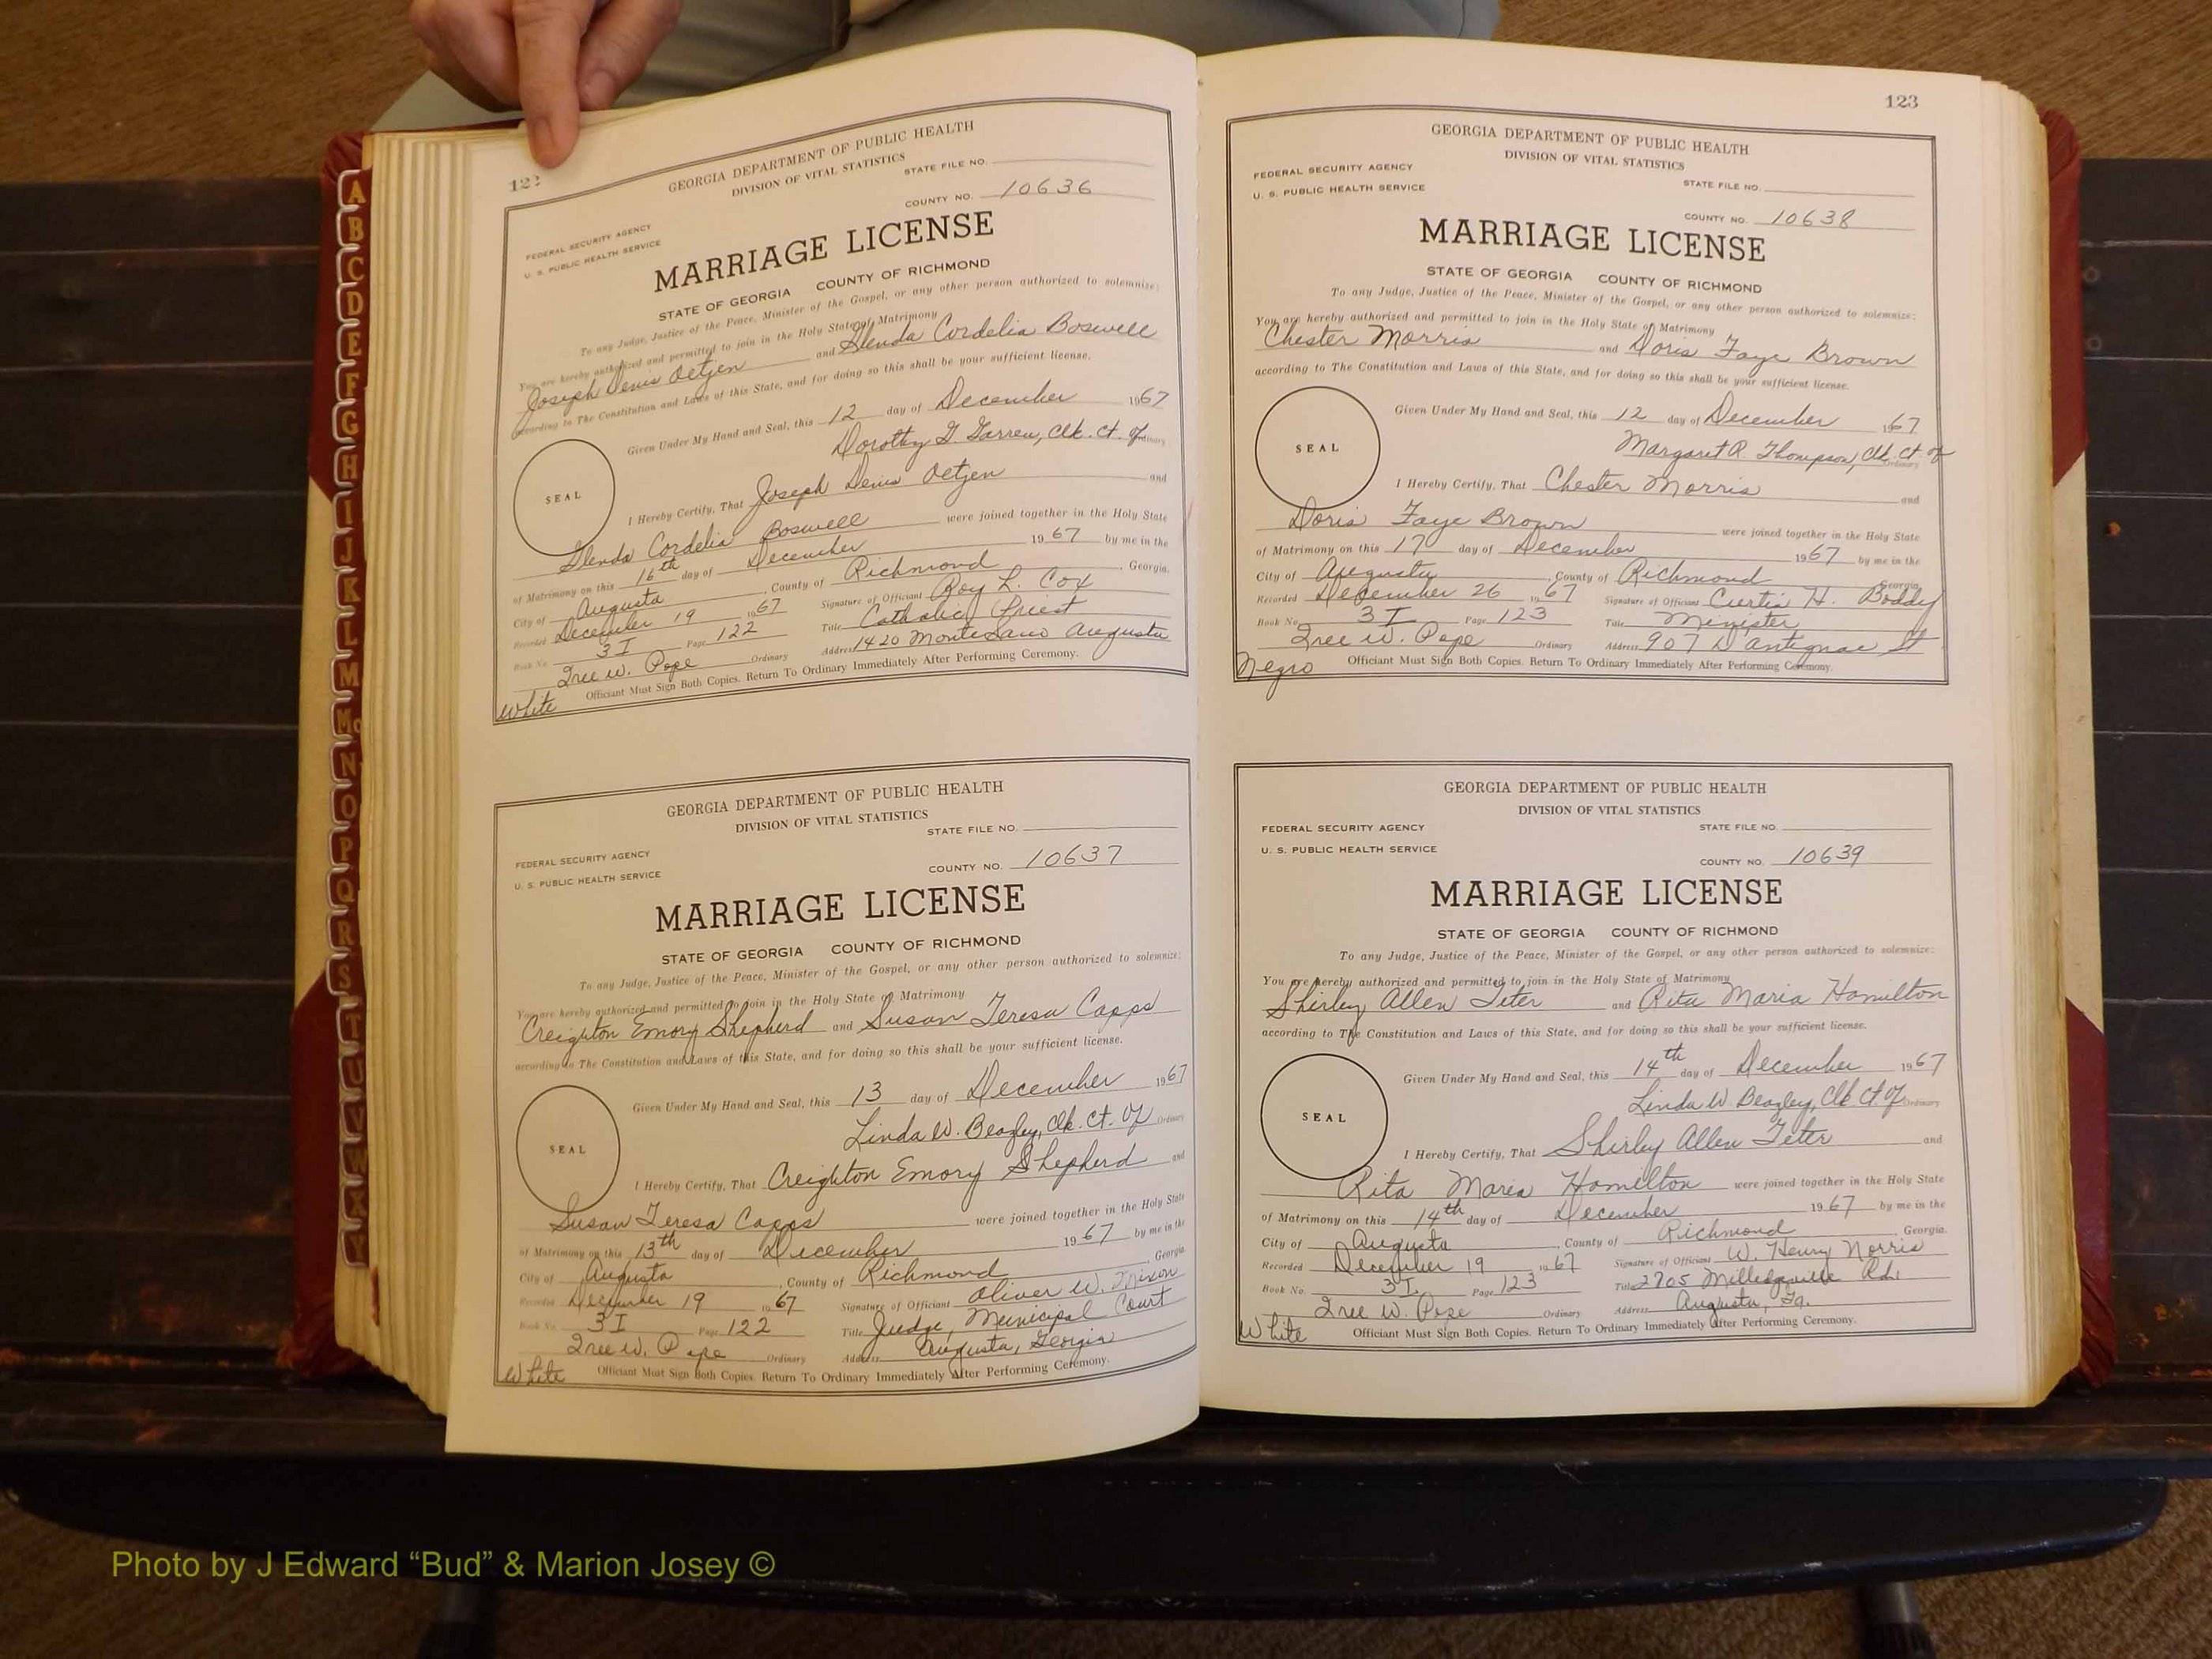 A
B
C
D
E
F
G
H
I
J
K
L
M
Mc
N
O
P
Q
R
S
T
U
V
W
X
Y
122
GEORGIA DEPARTMENT OF PUBLIC HEALTH
DIVISION OF VITAL STATISTICS
STATE FILE NO.
COUNTY NO. 10636
FEDERAL SECURITY AGENCY
U. S. PUBLIC HEALTH SERVICE
MARRIAGE LICENSE
STATE OF GEORGIA COUNTY OF RICHMOND
To any Judge, Justice of the Peace, Minister of the Gospel, or any other person authorized to solemnize:
You are hereby authorized and permitted to join in the Holy State of Matrimony
Joseph Denis Oetjen and Glenda Cordelia Boswell
according to The Constitution and Laws of this State, and for doing so this shall be your sufficient license.
Given Under My Hand and Seal, this 12 day of December 1967
Dorothy G. Garren, Clk. Ct. of Ordinary
SEAL
I Hereby Certify, That Joseph Denis Oetjen and
Glenda Cordelia Boswell were joined together in the Holy State
of Matrimony on this 16th day of December 1967 by me in the
City of Augusta, County of Richmond, Georgia.
Recorded December 19 1967 Signature of Officiant Roy L. Cox
Book No. 3 I Page 122 Title Catholic Priest
Iree W. Pope Ordinary Address 1420 Monte Sano Augusta
Officiant Must Sign Both Copies. Return To Ordinary Immediately After Performing Ceremony.
White
GEORGIA DEPARTMENT OF PUBLIC HEALTH
DIVISION OF VITAL STATISTICS
STATE FILE NO.
FEDERAL SECURITY AGENCY
COUNTY NO. 10637
U. S. PUBLIC HEALTH SERVICE
MARRIAGE LICENSE
STATE OF GEORGIA COUNTY OF RICHMOND
To any Judge, Justice of the Peace, Minister of the Gospel, or any other person authorized to solemnize:
You are hereby authorized and permitted to join in the Holy State of Matrimony
Creighton Emory Shepherd and Susan Teresa Capps
according to The Constitution and Laws of this State, and for doing so this shall be your sufficient license.
Given Under My Hand and Seal, this 13 day of December 1967
Linda W. Beazley, Clk. Ct. Of Ordinary
SEAL
I Hereby Certify, That Creighton Emory Shepherd and
Susan Teresa Capps were joined together in the Holy State
of Matrimony on this 13th day of December 1967 by me in the
City of Augusta, County of Richmond Georgia.
Recorded December 19 1967 Signature of Officiant Oliver W. Dixon
Book No. 3 I Page 122 Title Judge, Municipal Court
Iree W. Pope Ordinary Address Augusta, Georgia
White Officiant Must Sign Both Copies. Return To Ordinary Immediately After Performing Ceremony.
123
GEORGIA DEPARTMENT OF PUBLIC HEALTH
DIVISION OF VITAL STATISTICS
FEDERAL SECURITY AGENCY
STATE FILE NO.
U. S. PUBLIC HEALTH SERVICE
COUNTY NO. 10638
MARRIAGE LICENSE
STATE OF GEORGIA COUNTY OF RICHMOND
To any Judge, Justice of the Peace, Minister of the Gospel, or any other person authorized to solemnize:
You are hereby authorized and permitted to join in the Holy State of Matrimony
Chester Morris and Doris Faye Brown
according to The Constitution and Laws of this State, and for doing so this shall be your sufficient license.
Given Under My Hand and Seal, this 12 day of December 1967
Margaret R. Thompson, Clk. Ct. of Ordinary
SEAL
I Hereby Certify, That Chester Morris and
Doris Faye Brown were joined together in the Holy State
of Matrimony on this 17 day of December 1967 by me in the
City of Augusta, County of Richmond Georgia.
Recorded December 26 1967 Signature of Officiant Curtis H. Boddy
Book No. 3 I Page 123 Title Minister
Iree W. Pope Ordinary Address 907 D'antignac St
Negro Officiant Must Sign Both Copies. Return To Ordinary Immediately After Performing Ceremony.
GEORGIA DEPARTMENT OF PUBLIC HEALTH
DIVISION OF VITAL STATISTICS
FEDERAL SECURITY AGENCY STATE FILE NO.
U. S. PUBLIC HEALTH SERVICE
COUNTY NO. 10639
MARRIAGE LICENSE
STATE OF GEORGIA COUNTY OF RICHMOND
To any Judge, Justice of the Peace, Minister of the Gospel, or any other person authorized to solemnize:
You are hereby authorized and permitted to join in the Holy State of Matrimony
Shirley Allen Teter and Rita Maria Hamilton
according to The Constitution and Laws of this State, and for doing so this shall be your sufficient license.
Given Under My Hand and Seal, this 14th day of December 1967
Linda W. Beazley, Clk. Ct. Of Ordinary
SEAL
I Hereby Certify, That Shirley Allen Teter and
Rita Maria Hamilton were joined together in the Holy State
of Matrimony on this 14th day of December 1967 by me in the
City of Augusta, County of Richmond Georgia.
Recorded December 19 1967 Signature of Officiant W. Henry Norris
Book No. 3 I Page 123 Title 2705 Milledgeville Rd.
Iree W. Pope Ordinary Address Augusta, Ga.
White Officiant Must Sign Both Copies. Return To Ordinary Immediately After Performing Ceremony.
Photo by J Edward “Bud” & Marion Josey ©